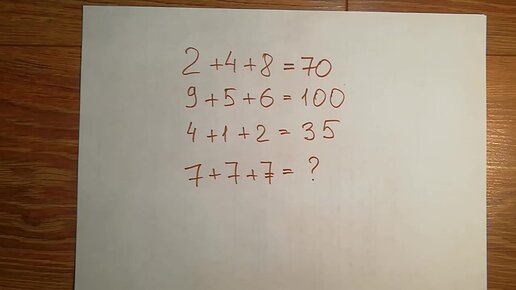 2+4+8=70
9+5+6=100
4+1+2=35
7+7+7=?